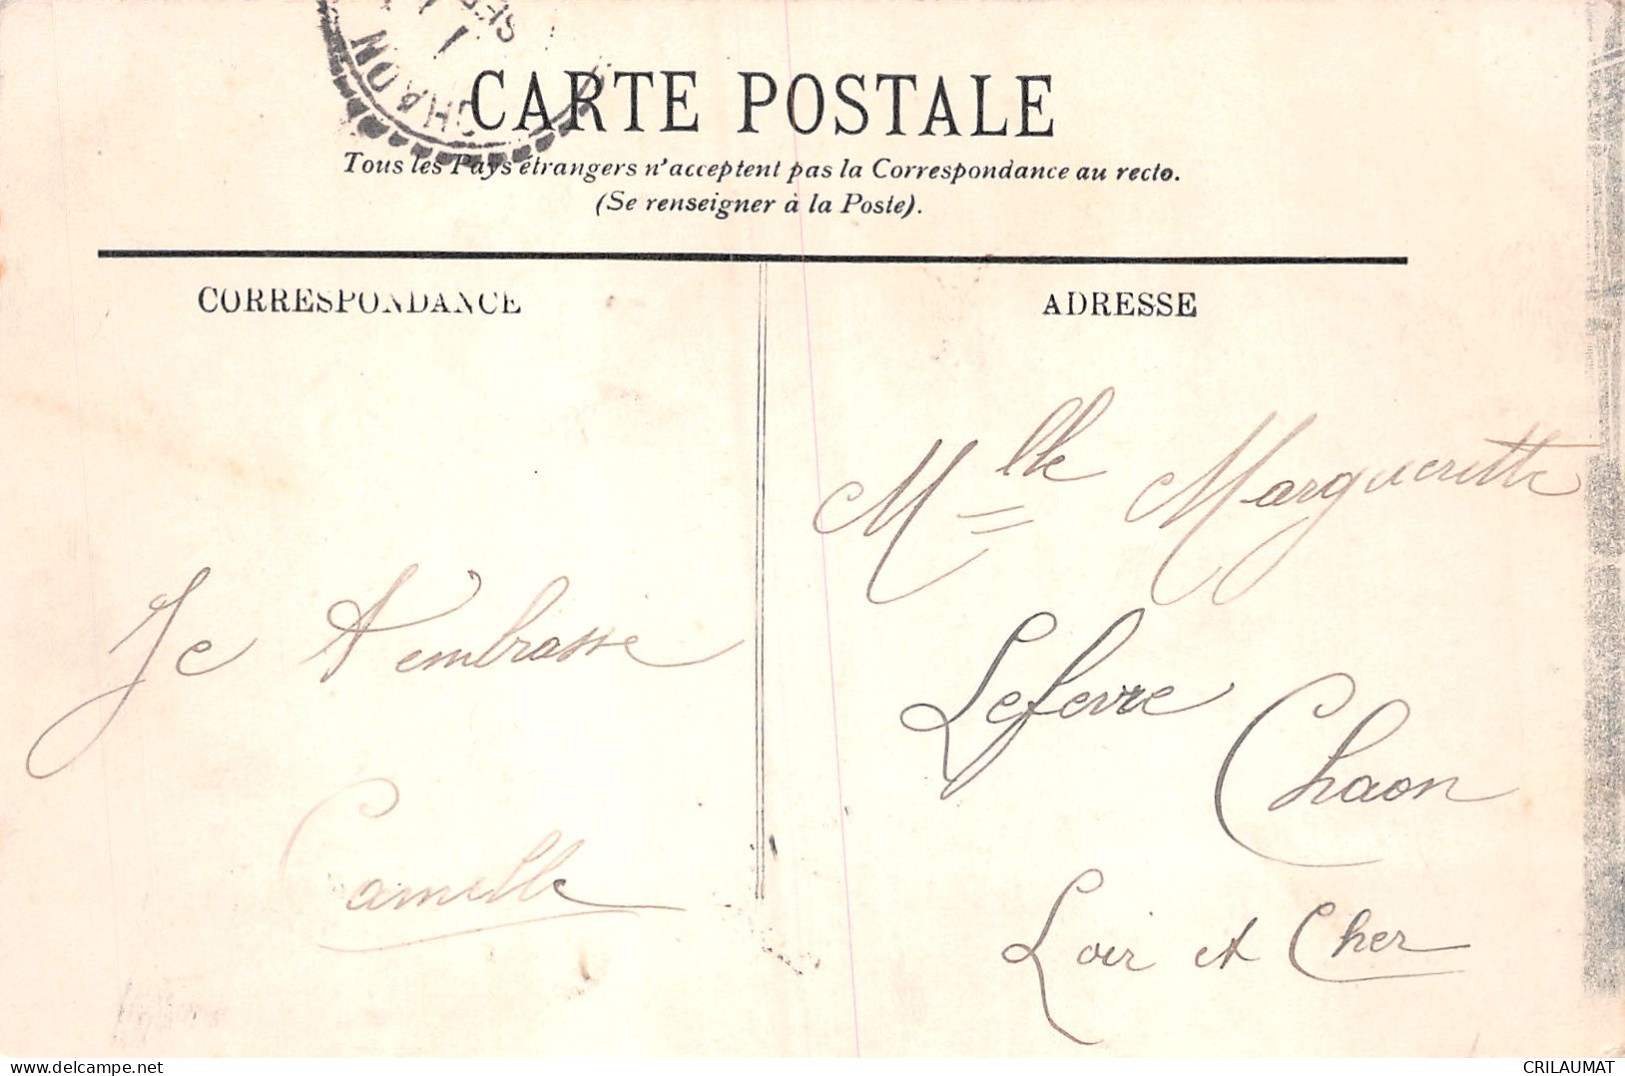 CHAON
1
SEP
CARTE POSTALE
Tous les Pays étrangers n'acceptent pas la Correspondance au recto.
(Se renseigner à la Poste).
CORRESPONDANCE
ADRESSE
Je t'embrasse
Camille
Mlle Margueritte
Lefevre
Chaon
Loir et Cher
CRILAUMAT